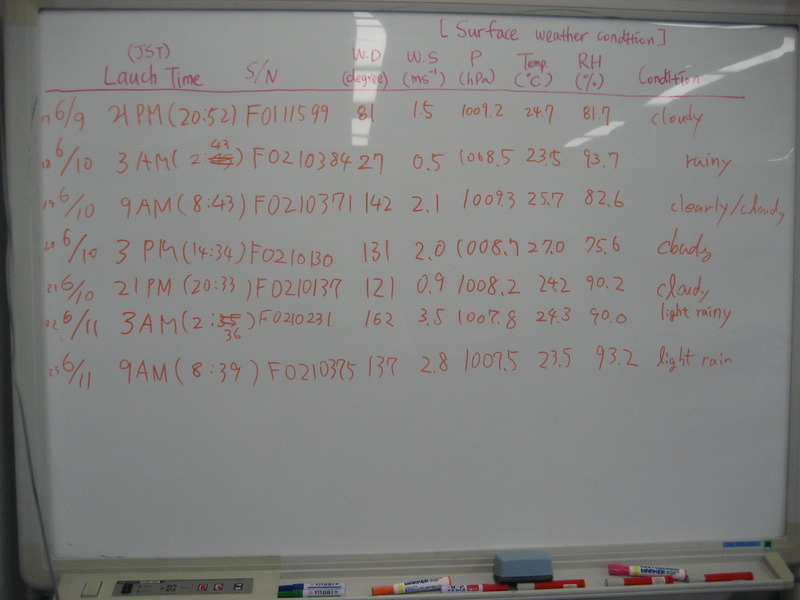 [Surface weather condition]
(JST) W.D W.S P Temp. RH
Lauch Time S/N (degree) (ms⁻¹) (hPa) (°C) (%) Condition
17 6/9 21PM(20:52) F0111599 81 1.5 1009.2 24.7 81.7 cloudy
18 6/10 3AM(2:43) F0210384 27 0.5 1008.5 23.5 93.7 rainy
19 6/10 9AM(8:43) F0210371 142 2.1 1009.3 25.7 82.6 clearly/cloudy
20 6/10 3PM(14:34) F0210130 131 2.0 1008.7 27.0 75.6 cloudy
21 6/10 21PM(20:33) F0210137 121 0.9 1008.2 242 90.2 cloudy
22 6/11 3AM(2:36) F0210231 162 3.5 1007.8 24.3 90.0 light rainy
23 6/11 9AM(8:39) F0210375 137 2.8 1007.5 23.5 93.2 light rain
MARKER